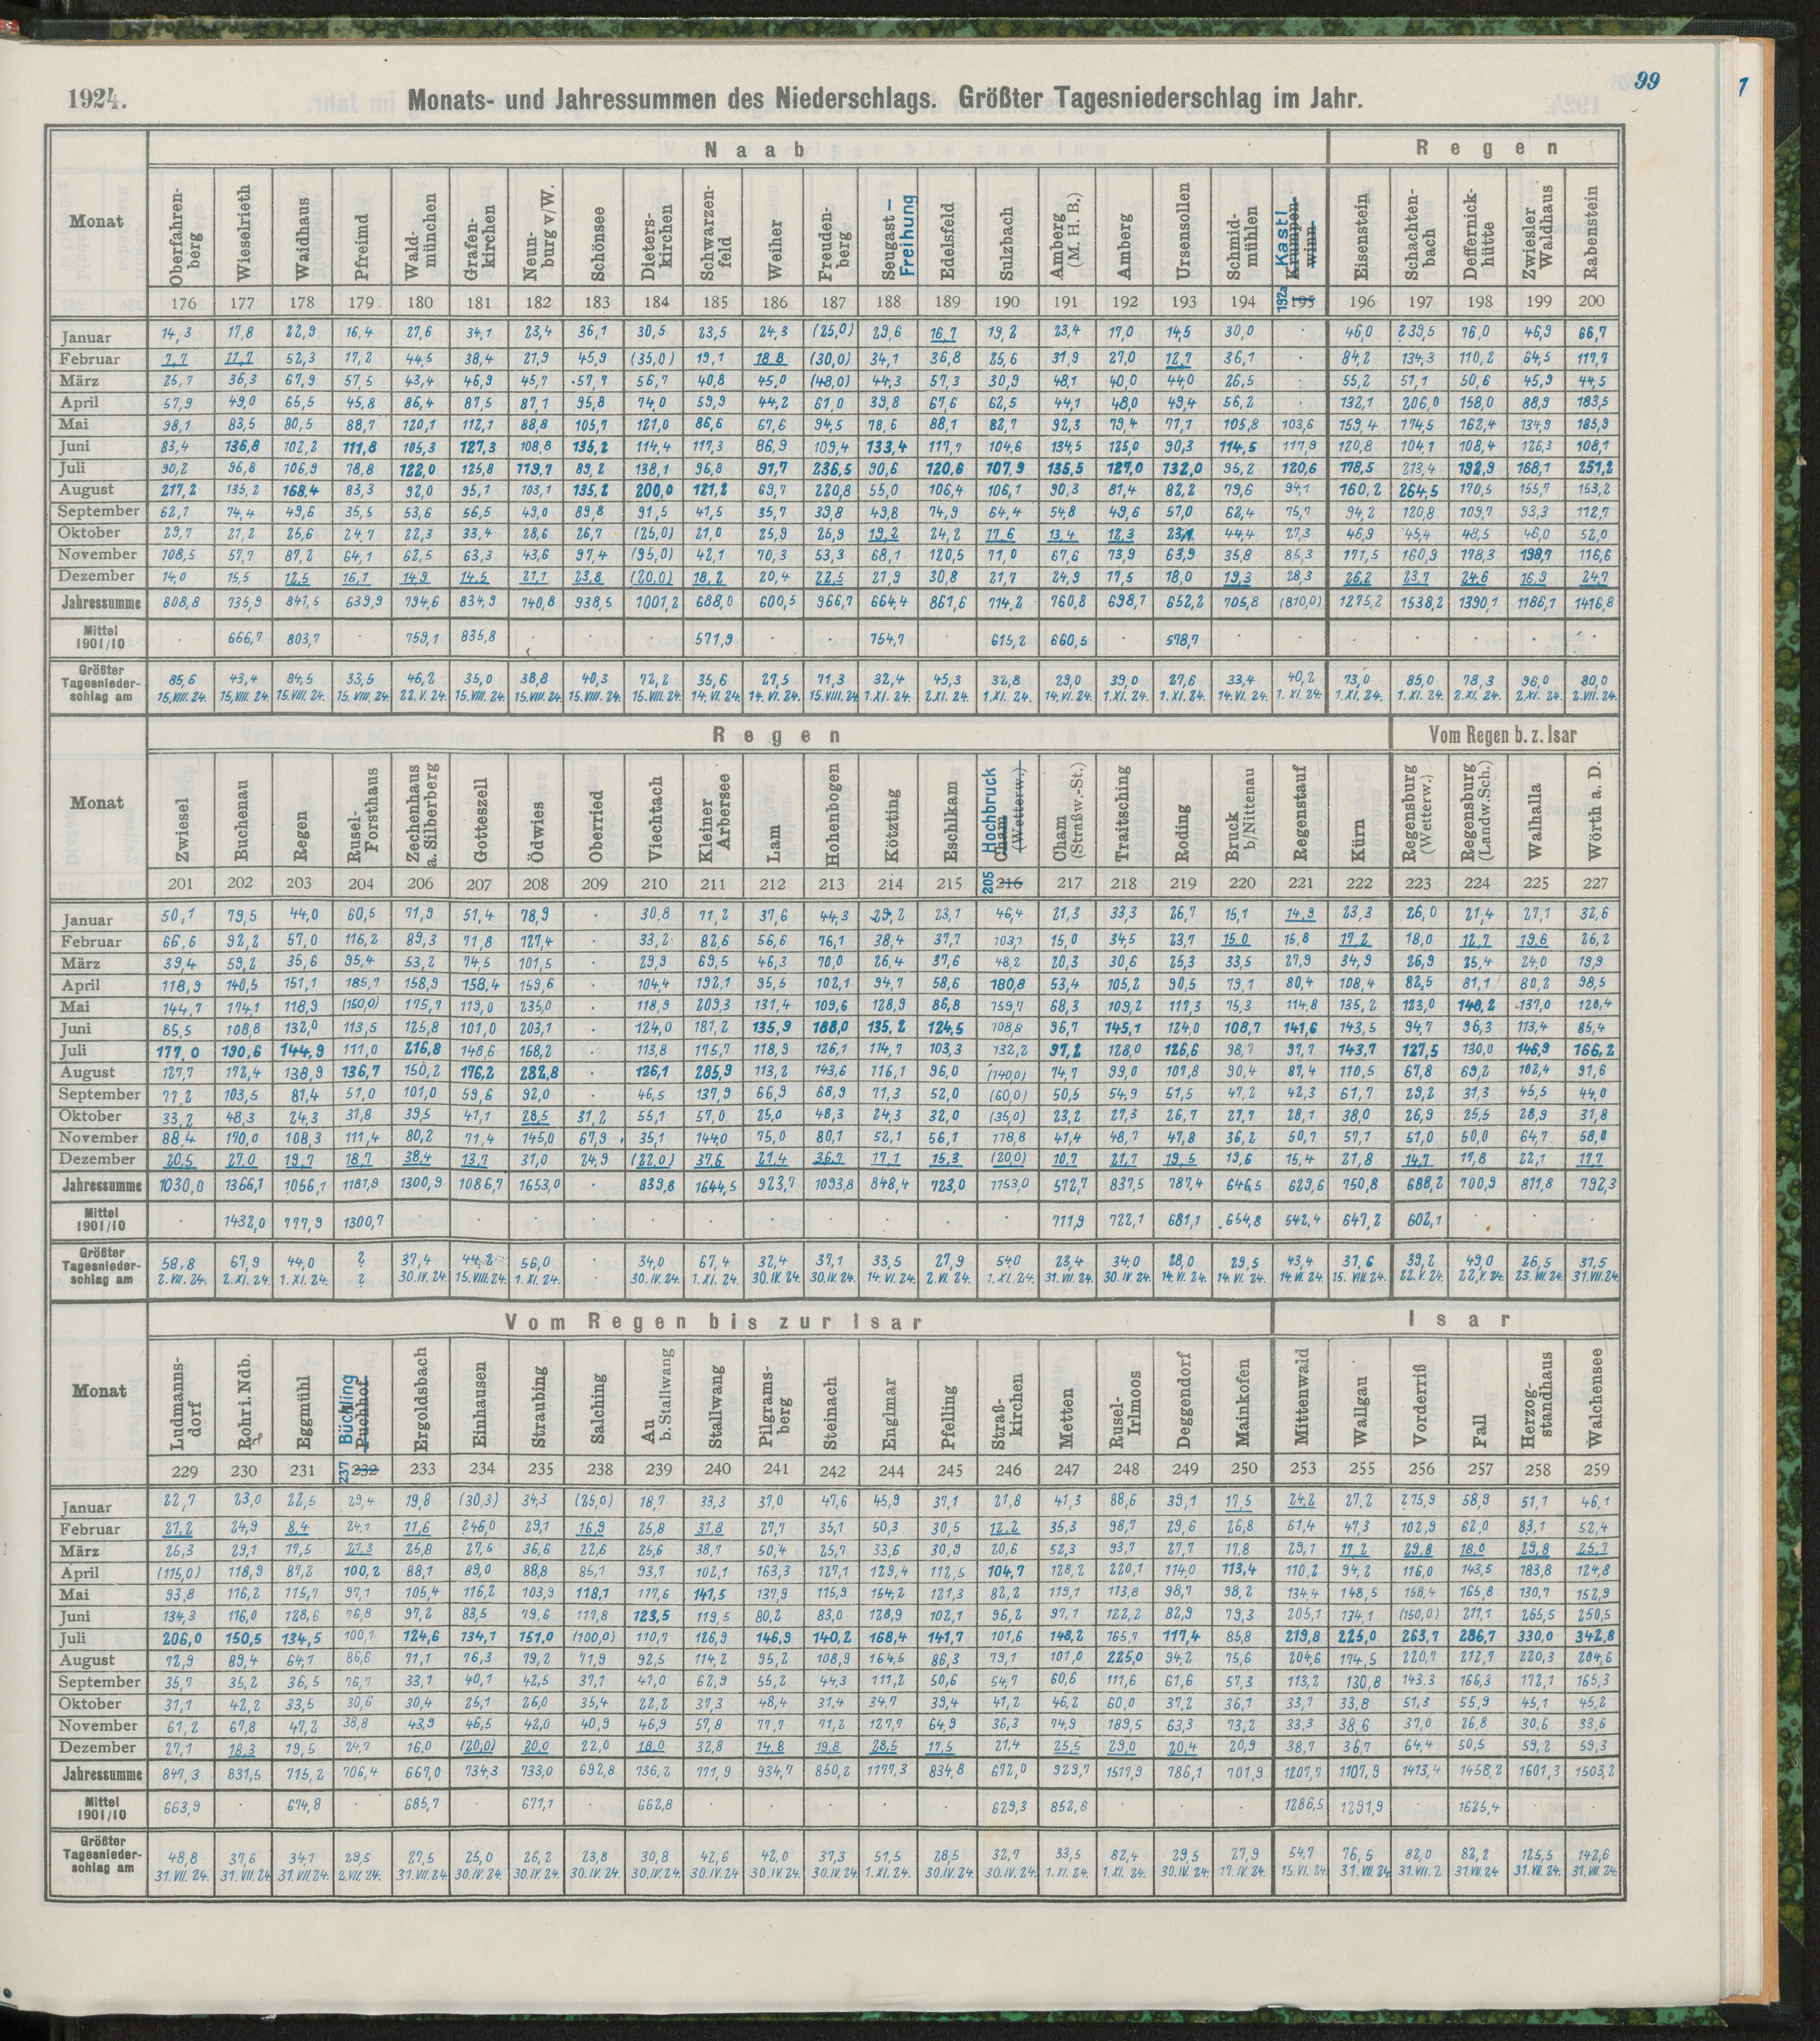 99
1
1924. Monats- und Jahressummen des Niederschlags. Größter Tagesniederschlag im Jahr.
Monat Naab Regen
Oberfahrenberg Wieselrieth Waidhaus Pfreimd Waldmünchen Grafenkirchen Neunburg v/W. Schönsee Dieterskirchen Schwarzenfeld Weiher Freudenberg Seugast-Freihung Edelsfeld Sulzbach Amberg (M. H. B.) Amberg Ursensollen Schmidmühlen Kastl Krumpenwinn Eisenstein Schachtenbach Deffernickhütte Zwiesler Waldhaus Rabenstein
176 177 178 179 180 181 182 183 184 185 186 187 188 189 190 191 192 193 194 192a 195 196 197 198 199 200
Januar 14,3 17,8 22,9 16,4 27,6 34,1 23,4 36,1 30,5 23,5 24,3 (25,0) 29,6 16,7 19,2 23,4 17,0 14,5 30,0 . 46,0 239,5 76,0 46,9 66,7
Februar 7,7 11,7 52,3 17,2 44,5 38,4 21,9 45,9 (35,0) 19,1 18,8 (30,0) 34,1 36,8 25,6 31,9 27,0 12,7 36,1 . 84,2 134,3 110,2 64,5 117,7
März 25,7 36,3 67,9 57,5 43,4 46,9 45,7 57,7 56,7 40,8 45,0 (48,0) 44,3 57,3 30,9 48,1 40,0 44,0 26,5 . 55,2 51,1 50,6 45,9 44,5
April 57,9 49,0 65,5 45,8 86,4 87,5 87,1 95,8 74,0 59,9 44,2 61,0 39,8 67,6 62,5 44,1 48,0 49,4 56,2 . 132,1 206,0 158,0 88,9 183,5
Mai 98,1 83,5 80,5 88,7 120,1 112,1 88,8 105,7 121,0 86,6 67,6 94,5 78,6 88,1 82,7 92,3 79,4 77,1 105,8 103,6 159,4 174,5 162,4 134,9 185,9
Juni 83,4 136,8 102,2 111,8 105,3 127,3 108,8 135,2 114,4 117,3 86,9 109,4 133,4 117,7 104,6 134,5 125,0 90,3 114,5 117,9 120,8 104,1 108,4 126,3 108,1
Juli 90,2 96,8 106,9 78,8 122,0 125,8 119,7 89,2 138,1 96,8 91,7 236,5 90,6 120,6 107,9 135,5 127,0 132,0 95,2 120,6 178,5 213,4 192,9 168,1 251,2
August 217,2 135,2 168,4 83,3 92,0 95,1 103,1 135,2 200,0 121,2 69,7 220,8 55,0 106,4 106,1 90,3 81,4 82,2 79,6 94,1 160,2 264,5 170,5 155,7 153,2
September 62,1 74,4 49,6 35,5 53,6 56,5 49,0 89,8 91,5 41,5 35,7 39,8 49,8 74,9 64,4 54,8 49,6 57,0 62,4 75,7 94,2 120,8 109,7 93,3 112,7
Oktober 29,7 21,2 25,6 24,7 22,3 33,4 28,6 26,7 (25,0) 21,0 25,9 25,9 19,2 24,2 17,6 13,4 12,3 23,1 44,4 27,3 46,9 45,4 48,5 46,0 52,0
November 108,5 57,7 87,2 64,1 62,5 63,3 43,6 97,4 (95,0) 42,1 70,3 53,3 68,1 120,5 71,0 67,6 73,9 63,9 35,8 85,3 171,5 160,9 178,3 198,7 116,6
Dezember 14,0 15,5 12,5 16,1 14,9 14,5 21,1 23,8 (20,0) 18,2 20,4 22,5 27,9 30,8 21,7 24,9 17,5 18,0 19,3 28,3 26,2 23,7 24,6 16,9 24,7
Jahressumme 808,8 735,9 847,5 639,9 794,6 834,9 740,8 938,5 1001,2 688,0 600,5 966,7 664,4 861,6 714,2 760,8 698,7 652,2 705,8 (810,0) 1275,2 1538,2 1390,1 1186,1 1416,8
Mittel 1901/10 . 666,7 803,7 . 759,1 835,8 . . . 571,9 . . 754,7 . 615,2 660,5 . 578,7 . . . . . . .
Größter Tagesniederschlag am 85,6 43,4 84,5 33,5 46,2 35,0 38,8 40,3 72,2 35,6 27,5 71,3 32,4 45,3 32,8 29,0 39,0 27,6 33,4 40,2 73,0 85,0 78,3 96,0 80,0
15.VIII.24. 15.VIII.24. 15.VIII.24. 15.VIII.24. 22.V.24. 15.VIII.24. 15.VIII.24. 15.VIII.24. 15.VIII.24. 14.VI.24. 14.VI.24. 15.VIII.24. 1.XI.24. 2.XI.24. 1.XI.24. 14.VI.24. 1.XI.24. 1.XI.24. 14.VI.24. 1.XI.24. 1.XI.24. 1.XI.24. 2.XI.24. 2.XI.24. 2.VII.24.
Monat Regen Vom Regen b. z. Isar
Zwiesel Buchenau Regen Rusel-Forsthaus Zechenhaus a. Silberberg Gotteszell Ödwies Oberried Viechtach Kleiner Arbersee Lam Hohenbogen Kötzting Eschlkam Hochbruck Cham (Wetterw.) Cham (Straßw.-St.) Traitsching Roding Bruck b/Nittenau Regenstauf Kürn Regensburg (Wetterw.) Regensburg (Landw.Sch.) Walhalla Wörth a. D.
201 202 203 204 206 207 208 209 210 211 212 213 214 215 205 216 217 218 219 220 221 222 223 224 225 227
Januar 50,1 79,5 44,0 60,5 71,9 51,4 78,9 . 30,8 71,2 37,6 44,3 29,2 23,1 46,4 21,3 33,3 26,7 15,1 14,9 23,3 26,0 21,4 27,1 32,6
Februar 66,6 92,2 57,0 116,2 89,3 71,8 127,4 . 33,2 82,6 56,6 76,1 38,4 37,7 103,7 15,0 34,5 23,7 15,0 15,8 17,2 18,0 12,7 19,6 26,2
März 39,4 59,2 35,6 95,4 53,2 74,5 101,5 . 29,9 69,5 46,3 70,0 26,4 37,6 48,2 20,3 30,6 25,3 33,5 27,9 34,9 26,9 25,4 24,0 19,9
April 118,9 140,5 151,1 185,7 158,9 158,4 159,6 . 104,4 192,1 95,5 102,1 94,7 58,6 180,8 53,4 105,2 90,5 79,1 80,4 108,4 82,5 81,1 80,2 98,5
Mai 144,7 174,1 118,9 (150,0) 175,7 119,0 235,0 . 118,9 209,3 131,4 109,6 128,9 86,8 159,7 68,3 109,2 117,3 75,3 114,8 135,2 123,0 140,2 137,0 120,4
Juni 85,5 108,8 132,0 113,5 125,8 101,0 203,1 . 124,0 181,2 135,9 188,0 135,2 124,5 108,8 96,7 145,1 124,0 108,7 141,6 143,5 94,7 96,3 113,4 85,4
Juli 177,0 190,6 144,9 111,0 216,8 148,6 168,2 . 113,8 175,7 118,9 126,1 114,7 103,3 132,2 97,2 128,0 126,6 98,7 97,7 143,7 127,5 130,0 146,9 166,2
August 127,7 172,4 138,9 136,7 150,2 176,2 282,8 . 126,1 285,9 113,2 143,6 116,1 96,0 (140,0) 74,7 99,0 107,8 90,4 87,4 110,5 67,8 69,2 102,4 91,6
September 77,2 103,5 81,4 51,0 101,0 59,6 92,0 . 46,5 137,9 66,9 68,9 71,3 52,0 (60,0) 50,5 54,9 51,5 47,2 42,3 61,7 29,2 31,3 45,5 44,0
Oktober 33,2 48,3 24,3 31,8 39,5 41,1 28,5 31,2 55,1 57,0 25,0 48,3 24,3 32,0 (35,0) 23,2 27,3 26,7 27,7 28,1 38,0 26,9 25,5 28,9 31,8
November 88,4 170,0 108,3 111,4 80,2 71,4 145,0 67,9 35,1 144,0 75,0 80,1 52,1 56,1 118,8 41,4 48,7 47,8 36,2 50,7 57,1 51,0 60,0 64,7 58,0
Dezember 20,5 27,0 19,7 18,7 38,4 13,7 31,0 24,9 (22,0) 37,6 21,4 36,7 17,1 15,3 (20,0) 10,7 21,7 19,5 19,6 15,4 21,8 14,7 17,8 22,1 17,7
Jahressumme 1030,0 1366,1 1056,1 1181,9 1300,9 1086,7 1653,0 . 839,8 1644,5 923,7 1093,8 848,4 723,0 1153,0 572,7 837,5 787,4 646,5 629,6 750,8 688,2 700,9 811,8 792,3
Mittel 1901/10 . 1432,0 777,9 1300,7 . . . . . . . . . . . 711,9 722,1 681,1 654,8 542,4 647,2 602,1 . . .
Größter Tagesniederschlag am 58,8 67,9 44,0 ? 37,4 44,2 56,0 . 34,0 67,4 32,4 37,1 33,5 27,9 54,0 23,4 34,0 28,0 29,5 43,4 37,6 39,2 49,0 26,5 31,5
2.VII.24. 2.XI.24. 1.XI.24. ? 30.IV.24. 15.VIII.24. 1.XI.24. . 30.IV.24. 1.XI.24. 30.IV.24. 30.IV.24. 14.VI.24. 2.VI.24. 1.XI.24. 31.VII.24. 30.IV.24. 14.VI.24. 14.VI.24. 14.VI.24. 15.VIII.24. 22.V.24. 22.V.24. 23.VII.24. 31.VII.24.
Monat Vom Regen bis zur Isar Isar
Ludmannsdorf Rohr i. Ndb. Eggmühl Bückling Puchhof Ergoldsbach Einhausen Straubing Salching Au b. Stallwang Stallwang Pilgramsberg Steinach Englmar Pfelling Straßkirchen Metten Rusel-Irlmoos Deggendorf Mainkofen Mittenwald Wallgau Vorderriß Fall Herzogstandhaus Walchensee
229 230 231 237 232 233 234 235 238 239 240 241 242 244 245 246 247 248 249 250 253 255 256 257 258 259
Januar 22,7 23,0 22,5 29,4 19,8 (30,3) 34,3 (25,0) 18,7 33,3 37,0 47,6 45,9 37,1 21,8 41,3 88,6 39,1 17,5 24,2 27,2 275,9 58,9 51,1 46,1
Februar 21,2 24,9 8,4 24,1 11,6 246,0 29,1 16,9 25,8 31,8 27,7 35,1 50,3 30,5 12,2 35,3 98,7 29,6 26,8 61,4 47,3 102,9 62,0 83,1 52,4
März 26,3 29,1 17,5 21,3 25,8 27,5 36,6 22,6 25,6 38,7 50,4 25,7 33,6 30,9 20,6 52,3 93,7 27,7 17,8 29,1 17,2 29,8 18,0 29,8 25,7
April (115,0) 118,9 87,2 100,2 88,1 89,0 88,8 85,1 93,7 102,1 163,3 127,1 129,4 112,5 104,7 128,2 220,1 114,0 113,4 110,2 94,2 116,0 143,5 183,8 124,8
Mai 93,8 116,2 115,7 97,1 105,4 116,2 103,9 118,1 117,6 141,5 137,9 115,9 154,2 121,3 82,2 119,1 113,8 98,7 98,2 134,4 148,5 158,4 165,8 130,7 152,9
Juni 134,3 116,0 128,6 76,8 97,2 83,5 79,6 117,8 123,5 119,5 80,2 83,0 128,9 102,1 96,2 97,1 122,2 82,9 79,3 205,1 134,1 (150,0) 211,1 265,5 250,5
Juli 206,0 150,5 134,5 100,1 124,6 134,7 151,0 (100,0) 110,7 126,9 146,9 140,2 168,4 141,7 101,6 148,2 165,7 117,4 85,8 219,8 225,0 263,7 286,7 330,0 342,8
August 72,9 89,4 64,1 86,6 71,1 76,3 79,2 71,9 92,5 114,2 95,2 108,9 164,5 86,3 79,1 101,0 225,0 94,2 75,6 204,6 174,5 220,7 212,7 220,3 204,6
September 35,7 35,2 36,5 76,7 33,1 40,1 42,5 37,1 41,0 62,9 55,2 44,3 111,2 50,6 54,7 60,6 111,6 61,6 57,3 113,2 130,8 143,3 166,3 172,1 165,3
Oktober 31,1 42,2 33,5 30,6 30,4 25,1 26,0 35,4 22,2 37,3 48,4 31,4 34,7 39,4 41,2 46,2 60,0 37,2 36,1 33,7 33,8 51,3 55,9 45,1 45,2
November 61,2 67,8 47,2 38,8 43,9 46,5 42,0 40,9 46,9 57,8 77,7 71,2 127,7 64,9 36,3 74,9 189,5 63,3 73,2 33,3 38,6 37,0 26,8 30,6 33,6
Dezember 27,1 18,3 19,5 24,7 16,0 (20,0) 20,0 22,0 18,0 32,8 14,8 19,8 28,5 17,5 21,4 25,5 29,0 20,4 20,9 38,7 36,7 64,4 50,5 59,2 59,3
Jahressumme 847,3 831,5 715,2 706,4 667,0 734,3 733,0 692,8 736,2 771,9 934,7 850,2 1177,3 834,8 672,0 929,7 1517,9 786,1 701,9 1207,7 1107,9 1413,4 1458,2 1601,3 1503,2
Mittel 1901/10 663,9 . 674,8 . 685,7 . 671,1 . 662,8 . . . . . 629,3 852,6 . . . 1286,5 1291,9 . 1625,4 . .
Größter Tagesniederschlag am 48,8 37,6 34,1 29,5 27,5 25,0 26,2 23,8 30,8 42,6 42,0 37,3 51,5 28,5 32,7 33,5 82,4 29,5 27,9 54,7 76,5 82,0 82,2 125,5 142,6
31.VII.24. 31.VII.24 31.VII.24. 2.VII.24. 31.VII.24. 30.IV.24. 30.IV.24. 30.IV.24. 30.IV.24. 30.IV.24 30.IV.24. 30.IV.24. 1.XI.24. 30.IV.24. 30.IV.24. 1.XI.24. 1.XI.24. 30.IV.24. 17.IV.24. 15.VI.24. 31.VII.24 31.VII.2 31.VII.24 31.VII.24. 31.VII.24.